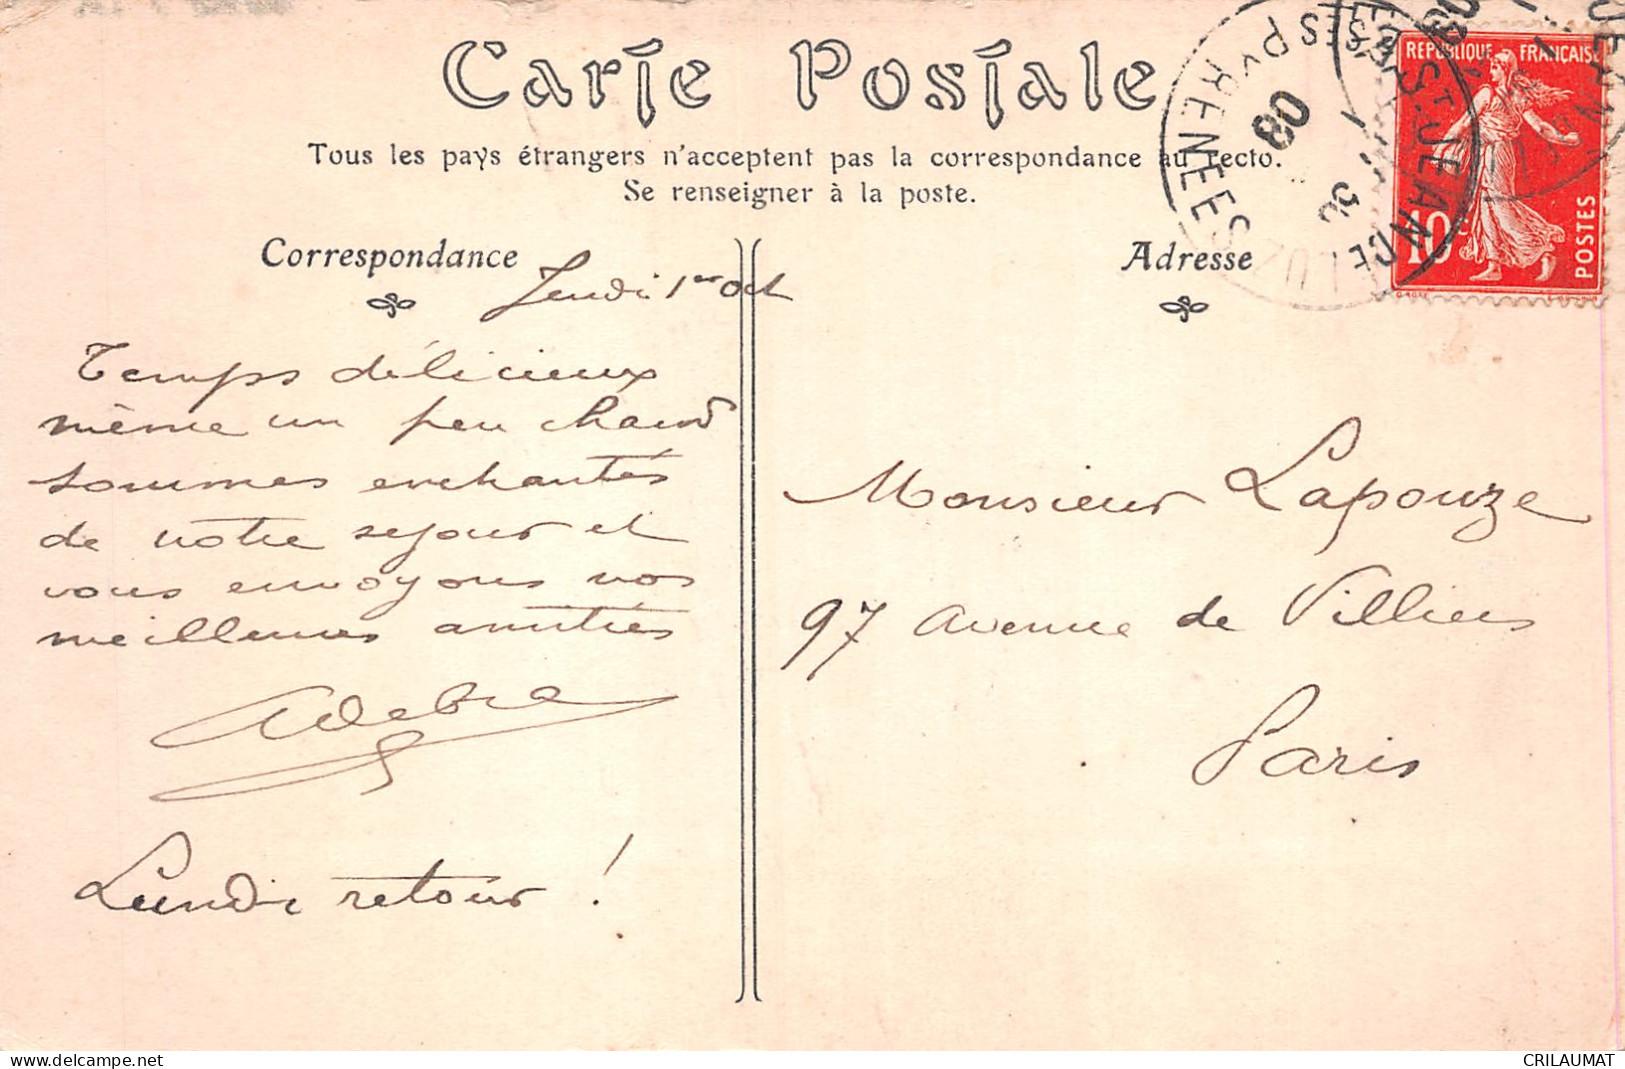 Carte Postale
Tous les pays étrangers n'acceptent pas la correspondance au recto.
Se renseigner à la poste.
Correspondance
Adresse
REPUBLIQUE FRANÇAISE
10c
POSTES
ST JEAN DE LUZ
PYRENEES
08
Jeudi 1er oct
Temps délicieux
même un peu chaud
sommes enchantés
de notre sejour et
vous envoyons nos
meilleures amitiés
Lundi retour !
Monsieur Lapouze
97 avenue de Villiers
Paris
CRILAUMAT